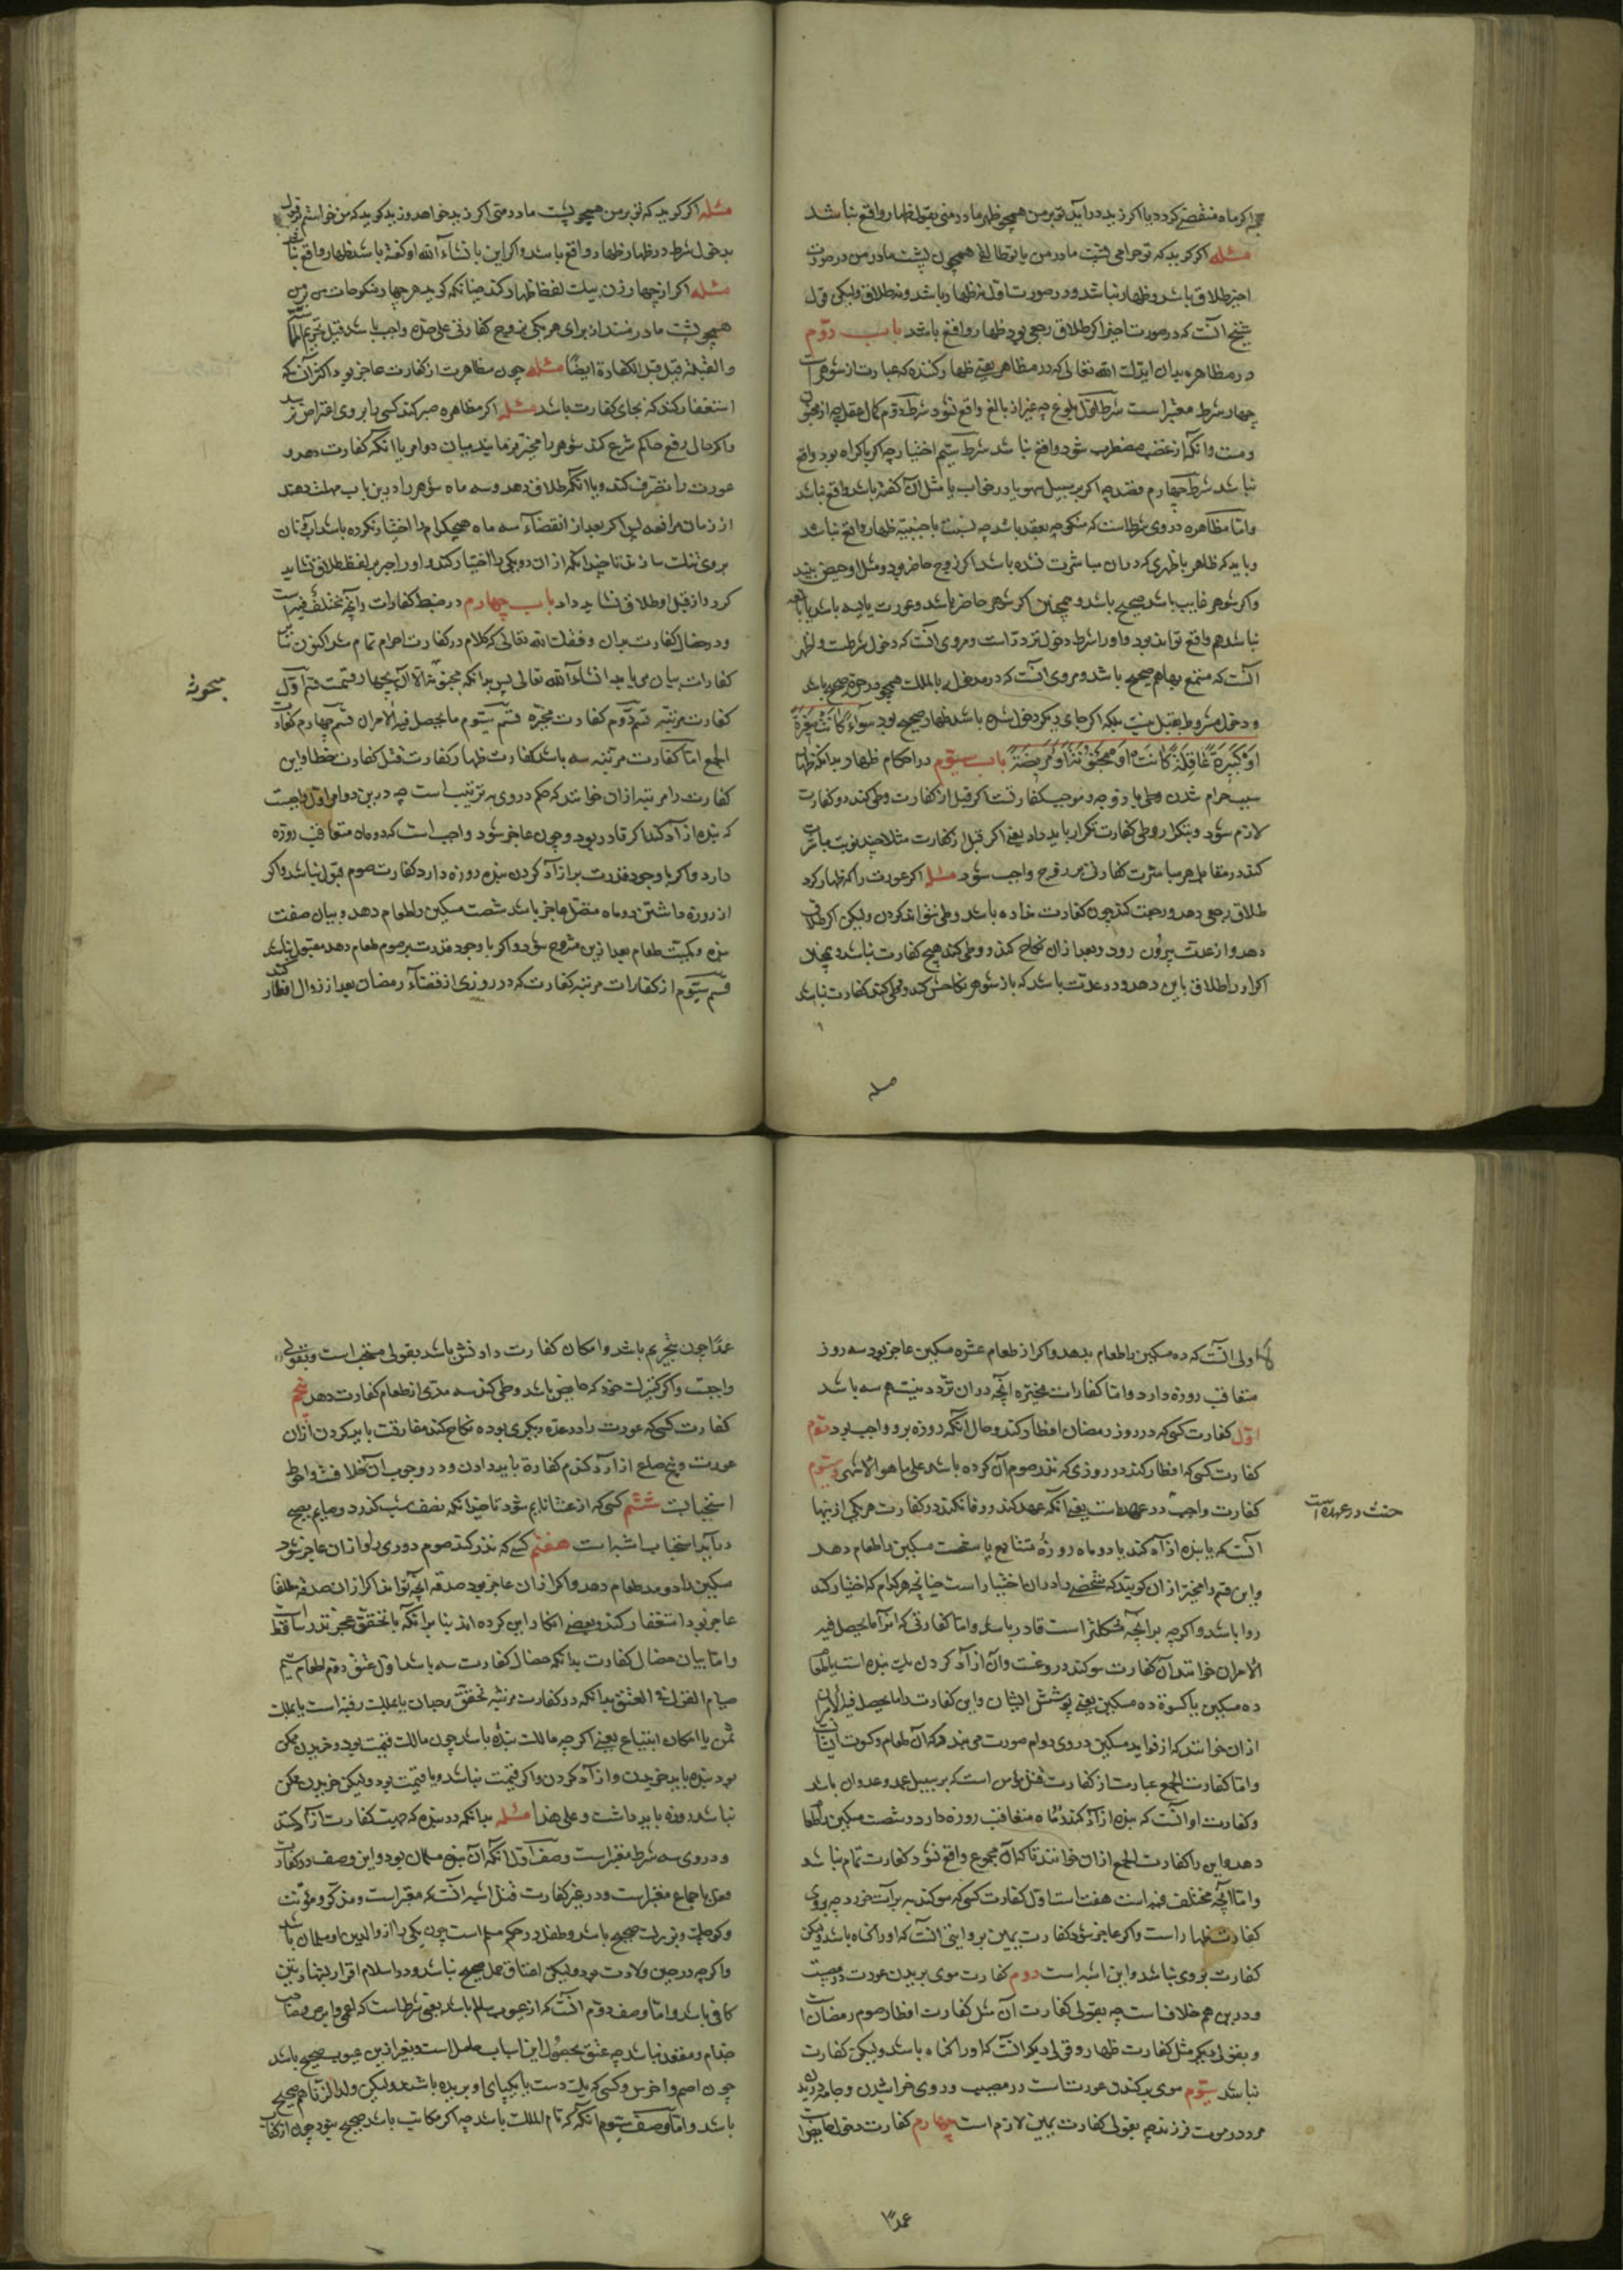 چه اکر ماه منقضی کردد یا اکر زید درآید تو بر من همچو ظهر مادر منی بقولی ظهار واقع نباشد
مسئله اکر کوید که تو حرامی پشت مادر من یا تو طالقی همچون پشت مادر من در صورت
اخیر طلاق باشد و ظهار نباشد و در صورت اول نه ظهار باشد و نه طلاق ولیکن قول
شیخ آنست که در صورت اخیر اکر طلاق رجعی بود ظهار واقع باشد باب دوم
در مظاهر بدان ایدک الله تعالی که در مظاهر یعنی ظهار کننده که عبارت از شوهر است
چهار شرط معتبر است شرط اول بلوغ چه غیر از بالغ واقع نشود شرط دوم کمال عقل چه از مجنون
و مست و آنکه از غضب مضطرب شود واقع نباشد شرط سیم اختیار چه اکر باکراه بود واقع
نباشد شرط چهارم قصد چه اکر بر سبیل سهو یا در خواب یا مثل آن کفته باشد واقع نباشد
و اما مظاهره در وی شرطست که منکوحه بعقد باشد چه نسبت باجنبیه ظهار واقع نباشد
و باید که طاهر باطهری که در آن مباشرت نشده باشد اکر زوج حاضر بود و مثل او حیض بیند
و اکر شوهر غایب باشد صحیح باشد و همچنین اکر شوهر حاضر باشد و عورت یایسه باشد یا بالغه
نباشد هم واقع تواند بود و اورا شرط دخول تردد است و مروی آنست که دخول شرطست و اظهر
آنست که متمتع بها هم صحیح باشد و مروی آنست که در مدخوله بالملک همچو در حره صحیح باشد
و دخول مشروط بقبل نیست بلکه اکر جای دیکر دخول شده باشد ظهار صحیح بود سواء کانت صغیرة
او کبیرة عاقلة کانت او مجنونة او مریضة باب سیوم در احکام ظهار بدانکه ظهار
سبب حرام شدن وطی با زوجه و موجب کفارتست اکر قبل از کفارت وطی کند دو کفارت
لازم شود و بتکرار وطی کفارت تکرار باید داد یعنی اکر قبل از کفارت مثلا چند نوبت مباشرت
کند در مقابل هر مباشرت کفارتی بر زوج واجب شود مسئله اکر عورت را که ظهار کرد
طلاق رجعی دهد و رجعت کند چون کفارت نداده باشد وطی نتواند کردن ولیکن اکر طلاق
دهد و از عدت بیرون رود و بعد از آن نکاح کند و وطی کند هیچ کفارت نباشد و همچنان
اکر او را طلاق باین دهد و در عدت باشد که باز شوهر نکاحش کند و وطی کند کفارت نباشد
مسئله
مسئله اکر کوید که تو بر من همچو پشت مادر منی اکر زید خواهد و زید کوید که من خواستم بر قول
بدخول شرط در ظهار ظهار واقع باشد و اکر این با انشاء الله او کفته باشد ظهار واقع نباشد
مسئله اکر از چهار زن بیک لفظ ظهار کند چنانکه کوید هر چهار منکوحات من بر من
همچو پشت مادر منند از برای هر یکی بزوج کفارتی علی حده واجب باشد قبل تحریم اللمس
والقبلة قبل الکفارة ایضا مسئله چون مظاهرت از کفارت عاجز بود اکثر آنکه
استغفار کند که بجای کفارت باشد مسئله اکر مظاهره صبر کند کسی را بر وی اعتراض نرسد
و اکر حال رفع حاکم شرع کند شوهر را مخیر فرمایند میان دو امر یا آنکه کفارت دهد و
عورت را تصرف کند و یا آنکه طلاق دهد و سه ماه شوهر را درین باب مهلت دهند
از زمان مرافعه پس اکر بعد از انقضاء سه ماه هیچکدام را اختیار نکرده باشد آب و نان
بر وی تنک سازند تا چندانکه از آن دو یکی را اختیار کند و او را جبر بر لفظ طلاق نشاید
کرد و از قبل او طلاق نشاید داد باب چهارم در ضبط کفارات و آنچه مختلف فیه است
و در خصال کفارت بدان وفقک الله تعالی که کلام در کفارت احرام تمام شد اکنون سایر
کفارات بیان می‌یابد انشاء الله تعالی پس بدانکه مبحوثه آن بچهار قسمت قسم اول
کفارت مرتبه قسم دوم کفارت مخیره قسم سیوم ما یحصل فیه الامران قسم چهارم کفارت
الجمع اما کفارت مرتبه سه باشد کفارت ظهار کفارت قتل کفارت خطا و این
کفارت را مرتبه از آن خوانند که حکم در وی بترتیب است چه درین دو امر اول واجبست
که بنده آزاد کند اکر قادر بود و چون عاجز شود واجب است که دو ماه متعاقب روزه
دارد و اکر با وجود قدرت بر آزاد کردن بنده روزه دارد کفارت صوم قبول نباشد و اکر
از روزه داشتن دو ماه متصل عاجز باشد شصت مسکین را طعام دهد و بیان صفت
بنده و کمیت طعام بعد ازین مشروح شود و اکر با وجود قدرت بر صوم طعام دهد مقبول نباشد
قسم سیوم از کفارات مرتبه کفارت که در روزی از قضاء رمضان بعد از زوال افطار کند
مبحوثه
اولی آنست که ده مسکین را طعام بدهد و اکر از طعام عشره مسکین عاجز بود سه روز
متعاقب روزه دارد و اما کفارات مخیره آنچه در آن تردد نیست هم سه باشد
اول کفارت کسی که در روز رمضان افطار کند و حال آنکه روزه برو واجب بود دوم
کفارت کسی که افطار کند در روزی که نذر صوم آن کرده باشد علی ما هو الاشهر و سیوم
کفارت واجب در عهدست یعنی آنکه عهد کند و وفا نکند در کفارت هر یکی از ینها
آنست که یا بنده آزاد کند یا دو ماه روزه متتابع یا شصت مسکین را طعام دهد
و این قسم را مخیره از آن کویند که شخص را در آن اختیار است چنانچه هر کدام که اختیار کند
روا باشد و اکرچه بر آنچه مشکلتر است قادر باشد و اما کفارتی که آنرا ما یحصل فیه
الامران خوانند آن کفارت سوکند دروغست و آن آزاد کردن یک بنده است یا طعام
ده مسکین یا کسوة ده مسکین یعنی پوشش ایشان و این کفارت را ما یحصل فیه الامران
از آن خوانند که از فواید مسکین در وی دوام صورت می‌بندد که آن طعام و کسوت ایشانست
و اما کفارت الجمع عبارت از کفارت قتل مؤمن است که بر سبیل عمد و عدوان باشد
و کفارت او آنست که بنده آزاد کند و دو ماه متعاقب روزه دارد و شصت مسکین را طعام
دهد و این را کفارت الجمع از آن خوانند تا که آن مجموع واقع نشود کفارت تمام نباشد
و اما آنچه مختلف فیه است هفتست اول کفارت کسی که سوکند ببرآت خورد چه بر وی
کفارت ظهار است و اکر عاجز شود کفارت یمین بروایتی آنست که او را کناه باشد ولیکن
کفارت بر وی نباشد و این اشبه است دوم کفارت موی بریدن عورت در مصیبت
و درین هم خلافست چه بقولی کفارت آن مثل کفارت افطار صوم رمضانست
و بقولی دیکر مثل کفارت ظهار و قولی دیکر آنست که او را کناه باشد ولیکن کفارت
نباشد سیوم موی برکندن عورتست در مصیبت و روی خراشیدن و جامه دریدن
مرد در موت فرزند چه بقولی کفارت یمین لازم است چهارم کفارت وطی حایض است
حنث در عهد است
عمدا
عمدا چون بتحریم باشد و امکان کفارت دادنش باشد بقولی مستحب است و بقولی
واجبست و اکر کنیزک خود که حایض باشد وطی کند سه مد از طعام کفارت دهد پنجم
کفارت کسی که عورت را در عده دیکری بوده نکاح کند مفارقت باید کردن از آن
عورت و پنج صاع از آرد کندم کفارة باید دادن و در وجوب آن خلافست و احوط
استحباب ششم کسی که از عشا نایم شود تا چندانکه نصف شب بکذرد و صایم بصبح
درآید استحباب اشبه است هفتم کسی که نذر کند صوم روزی را و از آن عاجز شود
مسکین را دو مد طعام دهد و اکر از آن عاجز بود صدقه آنچه تواند اکر از آن صدقه مطلقا
عاجز بود استغفار کند و بعضی انکار این کرده‌اند بنا بر آنکه با تحقق عجز نذر ساقط است
و اما بیان خصال کفارت بدانکه خصال کفارت سه باشد اول عتق دوم اطعام سیم
صیام القول فی العتق بدانکه در کفارت مرتبه تحقق وجدان یا بملک رقبه است یا بملک
ثمن با امکان ابتیاع یعنی اکرچه مالک بنده باشد چون مالک قیمت بود و خریدن ممکن
بود بنده باید خریدن و آزاد کردن و اکر قیمت نباشد و یا قیمت بود ولیکن خریدن ممکن
نباشد روزه باید داشت و علی هذا مسئله بدانکه در بنده که جهت کفارت آزاد کنند
و در وی سه شرط معتبر است وصف اول آنکه آن بنده مسلمان بود و این وصف در کفارت
قتل باجماع معتبر است و در غیر کفارت قتل اشبه آنست که معتبر است و مذکر و مؤنث
و کوچک و بزرک صحیح باشد و طفل در حکم مسلم است چون یکی را از والدین او مسلمان باشد
و اکرچه در حین ولادت بود ولیکن اعتاق حمل صحیح نباشد و در اسلام اقرار بشهادتین
کافی باشد و اما وصف دوم آنست که از عیوب سالم باشد یعنی شرطست که اعمی و ابرص و صاحب
جذام و مقعد نباشد چه عتق بحصول این اسباب حاصل است و بغیر ازین عیوب صحیح باشد
چون اصم و اخرس و کسی که یک دست یا یکپای او بریده باشد ولیکن ولد الزنا هم صحیح
باشد و اما وصف سیوم آنکه تام الملک باشد چه اکر مکاتب باشد صحیح نبود چون از کتابت